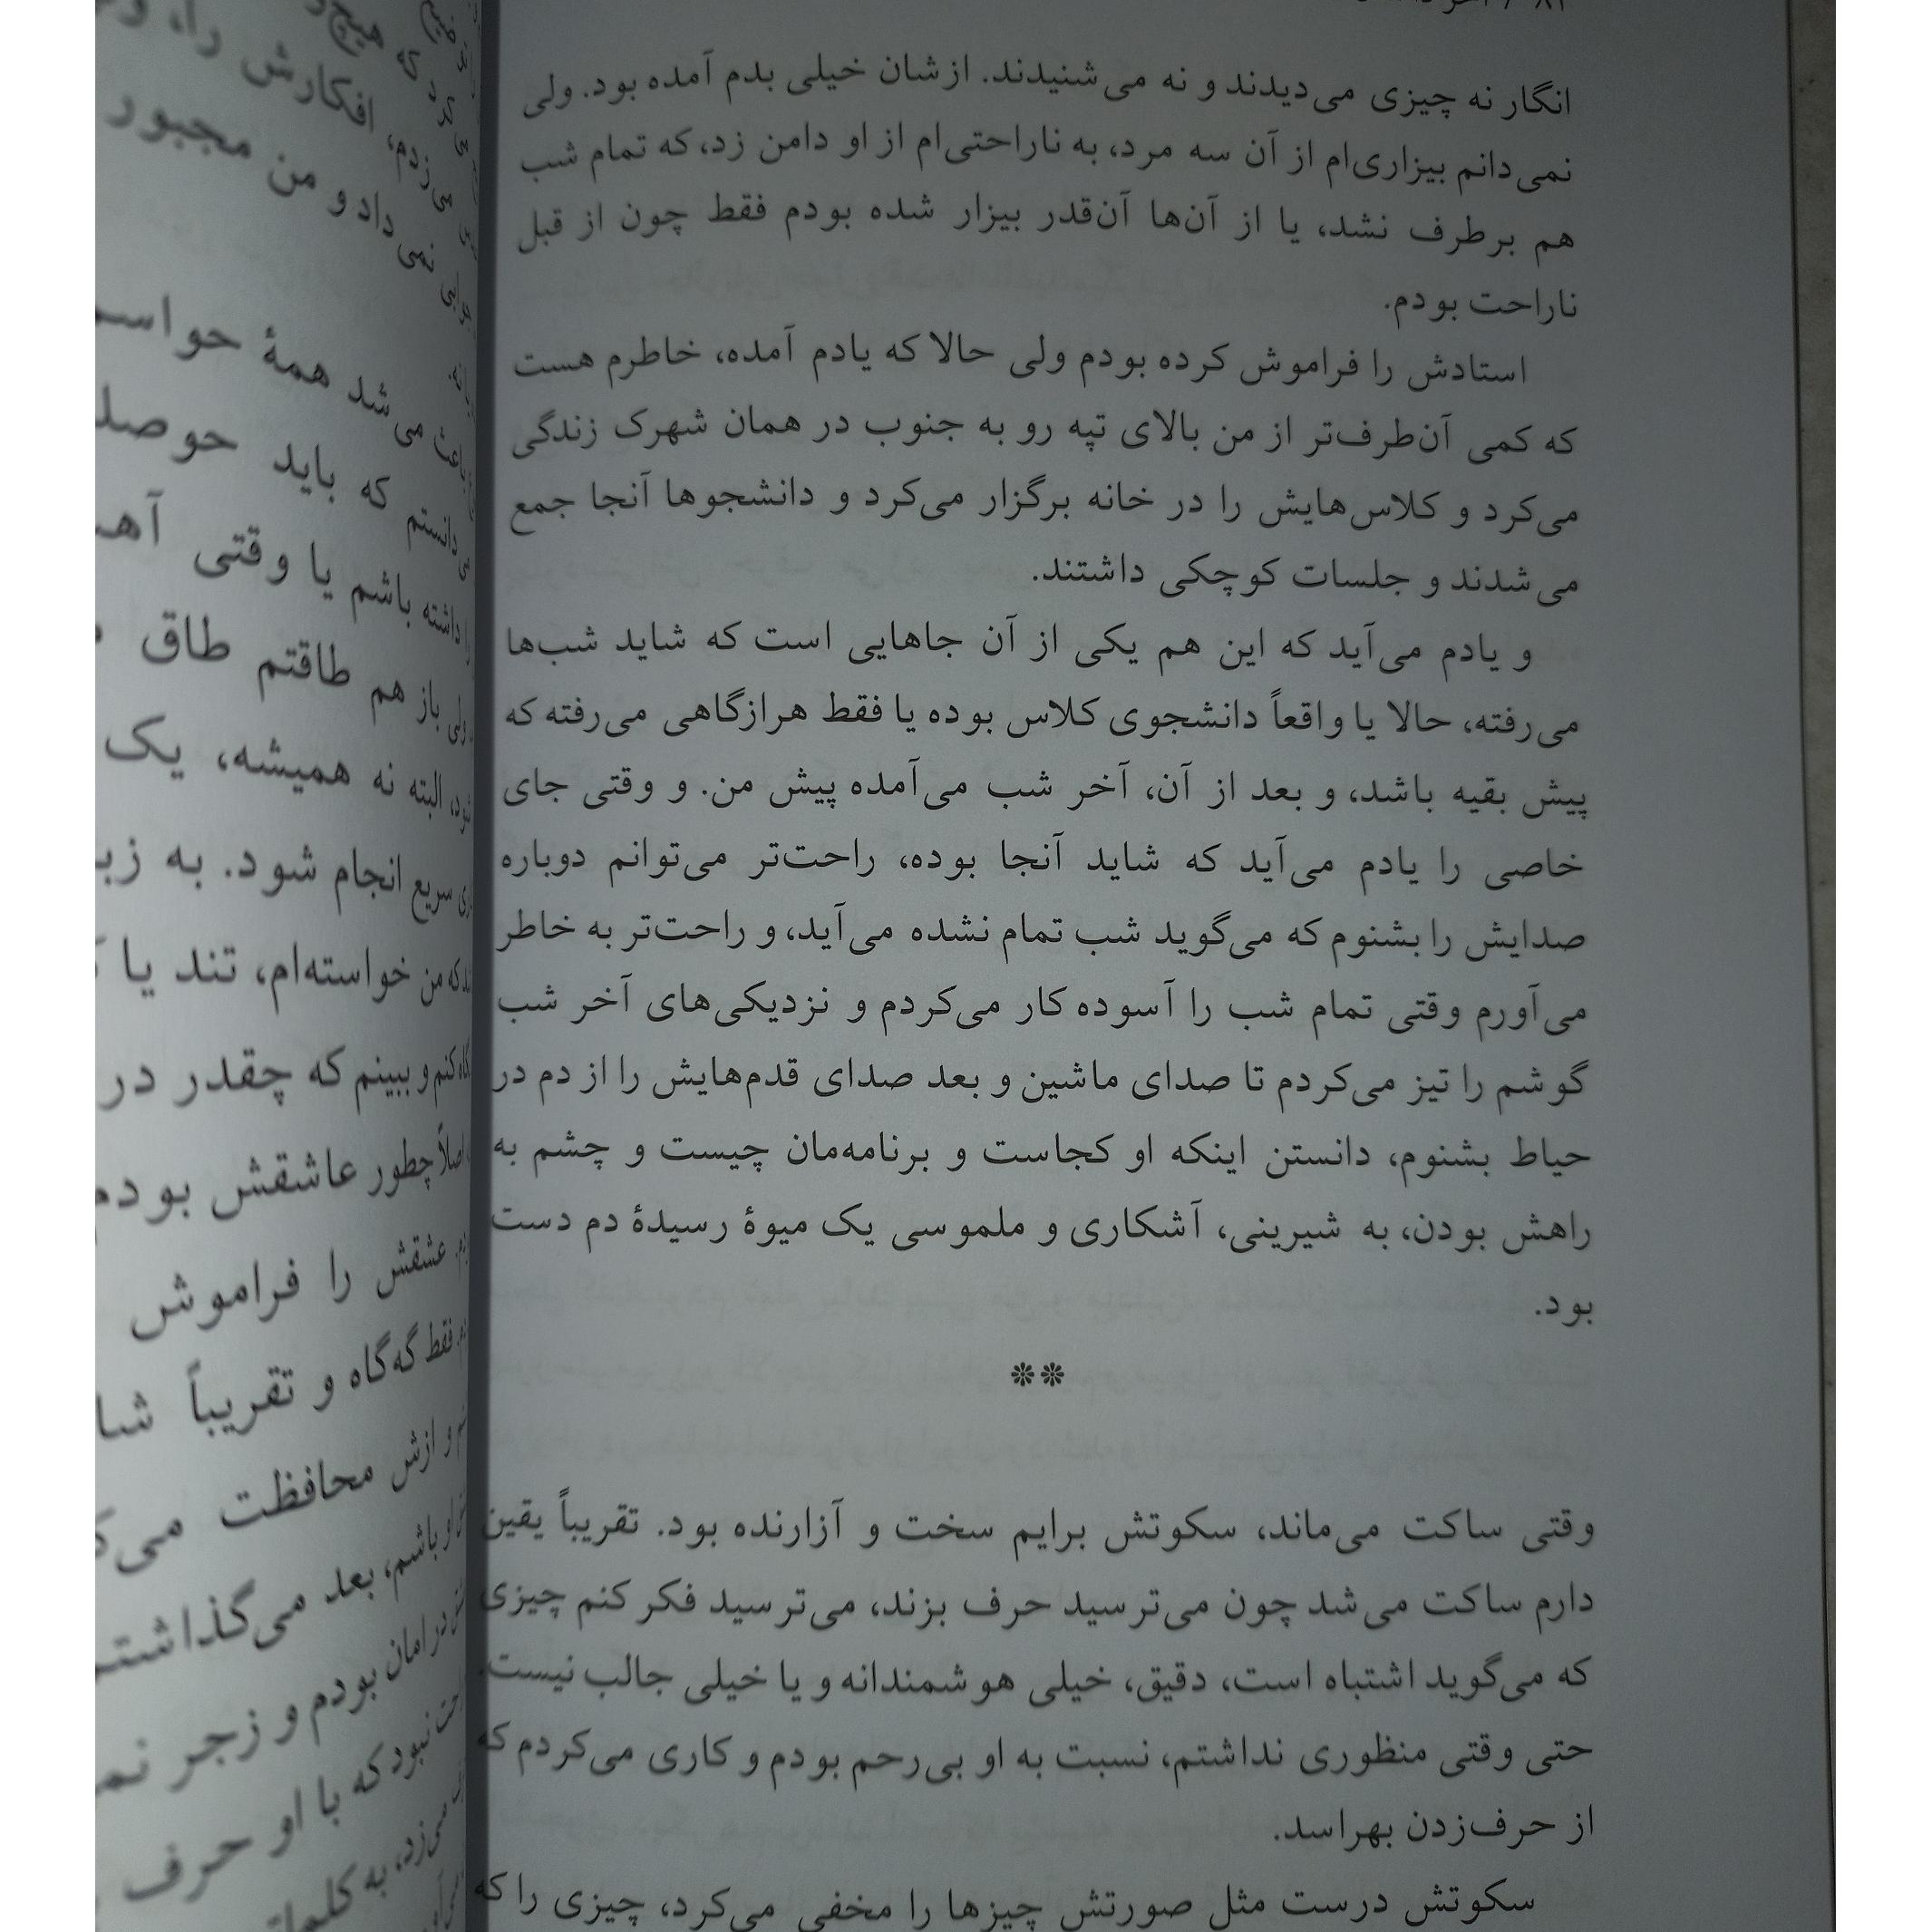 انگار نه چیزی می‌دیدند و نه می‌شنیدند. ازشان خیلی بدم آمده بود. ولی
نمی‌دانم بیزاری‌ام از آن سه مرد، به ناراحتی‌ام از او دامن زد، که تمام شب
هم برطرف نشد، یا از آن‌ها آن‌قدر بیزار شده بودم فقط چون از قبل
ناراحت بودم.
استادش را فراموش کرده بودم ولی حالا که یادم آمده، خاطرم هست
که کمی آن‌طرف‌تر از من بالای تپه رو به جنوب در همان شهرک زندگی
می‌کرد و کلاس‌هایش را در خانه برگزار می‌کرد و دانشجوها آنجا جمع
می‌شدند و جلسات کوچکی داشتند.
و یادم می‌آید که این هم یکی از آن جاهایی است که شاید شب‌ها
می‌رفته، حالا یا واقعاً دانشجوی کلاس بوده یا فقط هرازگاهی می‌رفته که
پیش بقیه باشد، و بعد از آن، آخر شب می‌آمده پیش من. و وقتی جای
خاصی را یادم می‌آید که شاید آنجا بوده، راحت‌تر می‌توانم دوباره
صدایش را بشنوم که می‌گوید شب تمام نشده می‌آید، و راحت‌تر به خاطر
می‌آورم وقتی تمام شب را آسوده کار می‌کردم و نزدیکی‌های آخر شب
گوشم را تیز می‌کردم تا صدای ماشین و بعد صدای قدم‌هایش را از دم در
حیاط بشنوم، دانستن اینکه او کجاست و برنامه‌مان چیست و چشم به
راهش بودن، به شیرینی، آشکاری و ملموسی یک میوهٔ رسیدهٔ دم دست
بود.
**
وقتی ساکت می‌ماند، سکوتش برایم سخت و آزارنده بود. تقریباً یقین
دارم ساکت می‌شد چون می‌ترسید حرف بزند، می‌ترسید فکر کنم چیزی
که می‌گوید اشتباه است، دقیق، خیلی هوشمندانه و یا خیلی جالب نیست.
حتی وقتی منظوری نداشتم، نسبت به او بی‌رحم بودم و کاری می‌کردم که
از حرف‌زدن بهراسد.
سکوتش درست مثل صورتش چیزها را مخفی می‌کرد، چیزی را که
افکارش را،
نمی‌داد و من مجبور
می‌شد همهٔ
که باید
باشم یا وقتی
باز هم طاقتم طاق
البته نه همیشه، یک
سریع انجام شود. به
که من خواسته‌ام، تند یا
و ببینم که چقدر در
چطور عاشقش بودم
عشقش را فراموش
فقط گه‌گاه و تقریباً
و ازش محافظت
باشم، بعد می‌گذاشتم
در امان بودم و زجر
نبود که با او حرف